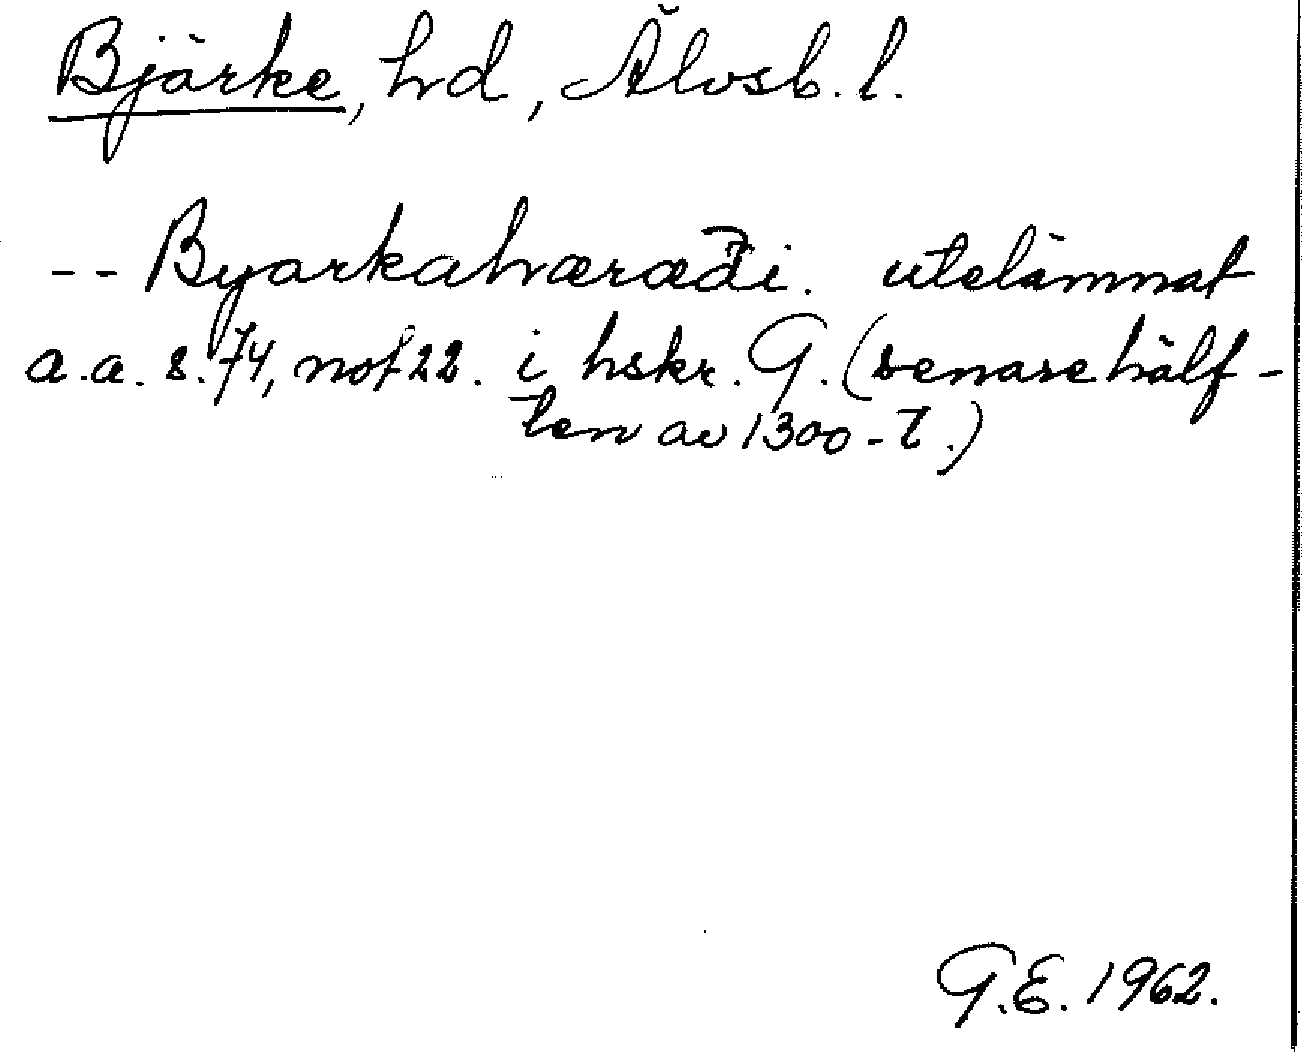 Bjärke, hd, Älvsb. l.
-- Byarkahæræði. utelämnat
a.a. s. 74, not 22. i hskr. G. (senare hälf-
ten av 1300-t.)
G.E. 1962.